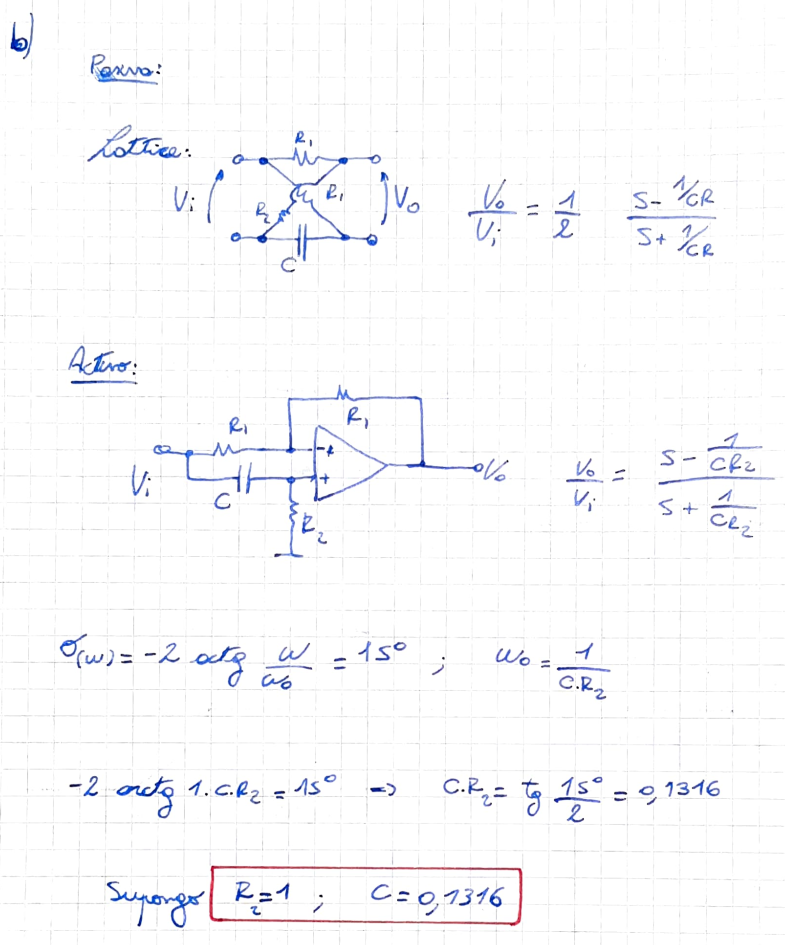 b)
Pasivo:
Lattice:
R₁
R₁
R₂
C
Vi
Vo
Vo/Vi = 1/2 (S - 1/CR)/(S + 1/CR)
Activo:
R₁
R₁
Vi
C
R₂
Vo
Vo/Vi = (S - 1/CR₂)/(S + 1/CR₂)
σ(w) = -2 actg w/wo = 15° ; wo = 1/C.R₂
-2 arctg 1.C.R₂ = 15° => C.R₂ = tg 15°/2 = 0,1316
Supongo R₂=1 ; C=0,1316